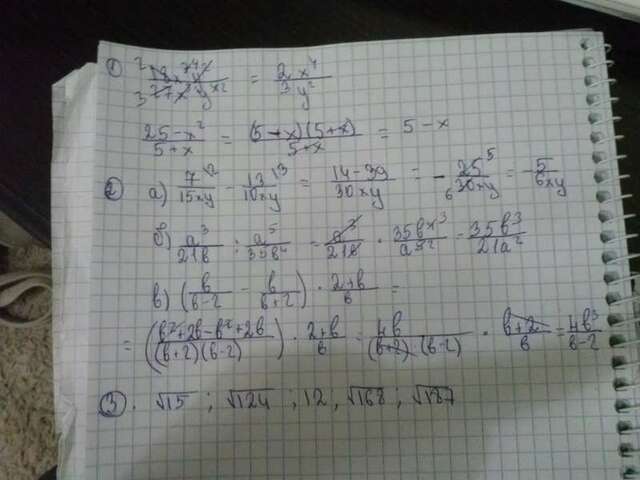 ① 2 18x⁷y / 3 27x³y x² = 2x⁴ / 3y²
25-x² / 5+x = (5-x)(5+x) / 5+x = 5-x
② а) 7 / 15xy - 13 / 10xy = 14-39 / 30xy = - 25 5 / 6 30xy = - 5 / 6xy
б) a³ / 21b : a⁵ / 35b⁴ = a³ / 21b · 35b⁴ ³ / a⁵ ² = 35b³ / 21a²
в) (b / b-2 - b / b+2) · 2+b / b =
= (b²+2b-b²+2b / (b+2)(b-2)) · 2+b / b = 4b / (b+2)·(b-2) · b+2 / b = 4b / b-2
③. √15 ; √124 ; 12, √168 ; √187